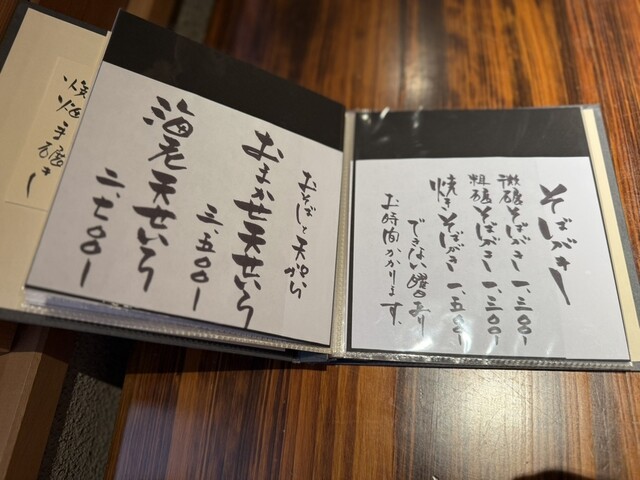 そばがき
微碾そばがき 一、三〇〇ー
粗碾そばがき 一、三〇〇ー
焼きそばがき 一、五〇〇ー
できない曜日あり
お時間かかります。
おそばと天ぷら
おまかせ天せいろ
三、五〇〇ー
海老天せいろ
二、七〇〇ー